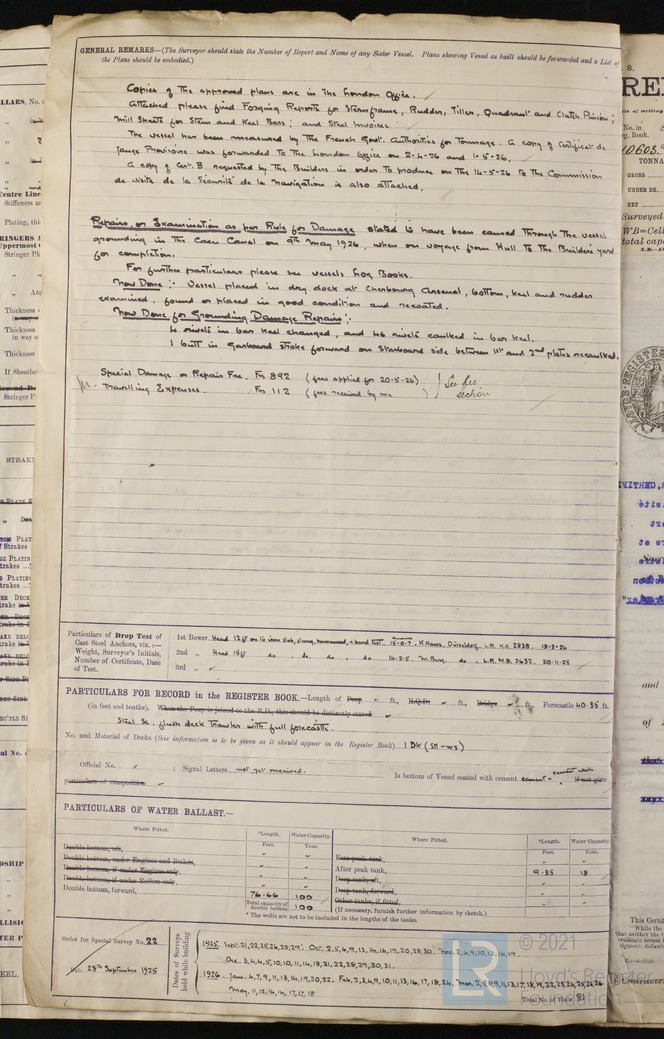 GENERAL REMARKS—(The Surveyor should state the Number of Report and Name of any Sister Vessel. Plans showing Vessel as built should be forwarded and a List of
the Plans should be embodied.)
Copies of the approved plans are in the London Office.
Attached please find Forging Reports for Sternframe, Rudder, Tiller, Quadrant and Clutch Pinion;
Mill Sheets for Stem and Keel Bars; and Steel Invoices.
The vessel has been measured by the French Govt. Authorities for Tonnage. A copy of Certificat de
Jauge Provisoire was forwarded to the London Office on 2-4-26 and 1-5-26.
A copy of Cert. B requested by the Builders in order to produce on the 14-5-26 to the Commission
de visite de la Sécurité de la Navigation is also attached.
Repairs, or Examination as per Rule for Damage stated to have been caused through the vessel
grounding in the Caen Canal on 9th May 1926, when on voyage from Hull to the Builders yard
for completion.
For further particulars please see vessels Log Books.
Now Done:- Vessel placed in dry dock at Cherbourg Arsenal, bottom, keel and rudder
examined, found or placed in good condition and recoated.
Now Done for Grounding Damage Repairs:-
4 rivets in bar keel changed, and 46 rivets caulked in bar keel.
1 butt in garboard strake forward on starboard side between 1st and 2nd plates recaulked.
Special Damage or Repair Fee. Frs 892 (fees applied for 20-5-26) See fee
Travelling Expenses. Frs 112 (fees received by me ) section
Particulars of Drop Test of
Cast Steel Anchors, viz. :—
Weight, Surveyor's Initials,
Number of Certificate, Date
of Test.
1st Bower Head 12ft on to iron slab, slung, hammered, & bend test. 15-0-7. K. Haas. Düsseldorf. L.R. KH 2838. 18-3-26
2nd „ Head 15ft do. do. do. do 14-2-5. M. Burg. do. L.R. M.B. 2632. 20-11-25
3rd „
PARTICULARS FOR RECORD in the REGISTER BOOK.—Length of Poop - ft., R.Q.Dk - ft., Bridge - ft., Forecastle 40·35 ft.
(in feet and tenths). When the Poop is joined to the B.D., this should be distinctly stated
Steel Sc. flush deck Trawler with full forecastle.
No. and Material of Decks (this information is to be given as it should appear in the Register Book) 1 Dk (Stl-ws)
Official No. ; Signal Letters not yet received. Is bottom of Vessel coated with cement cement & cement wash If not give
particulars of composition
PARTICULARS OF WATER BALLAST.—
Where Fitted. *Length. Water Capacity. Where Fitted. *Length. Water Capacity.
Feet. Tons. Feet. Tons.
Double bottom, aft,
Double bottom, under Engines and Boilers, Fore peak tank,
Double bottom, if under Engines only, After peak tank, 9·35 18
Double bottom, if under Boilers only, Deep tank, aft,
Double bottom, forward, 76·66 100 Deep tank, forward,
Total capacity of double bottom 100 Other tanks, if fitted,
(If necessary, furnish further information by sketch.)
* The wells are not to be included in the lengths of the tanks.
Order for Special Survey No. 22
28th September 1925
Dates of Surveys
held while building
1925. Sept. 21,22,25,26,28,29. Oct. 2,5,6,9,13,14,16,19,20,28,30. Nov. 2,4,9,10,12,14,19.
Dec. 3,4,4,5,10,10,11,14,18,21,22,28,29,30,31.
1926. Jan. 4,7,9,11,13,14,19,20,22. Feb. 2,3,4,9,10,11,13,16,17,18,24.
May. 11,12,14,14,17,17,18
Total No. of Visits 81
© 2021
LR
Lloyd's Register
Foundation